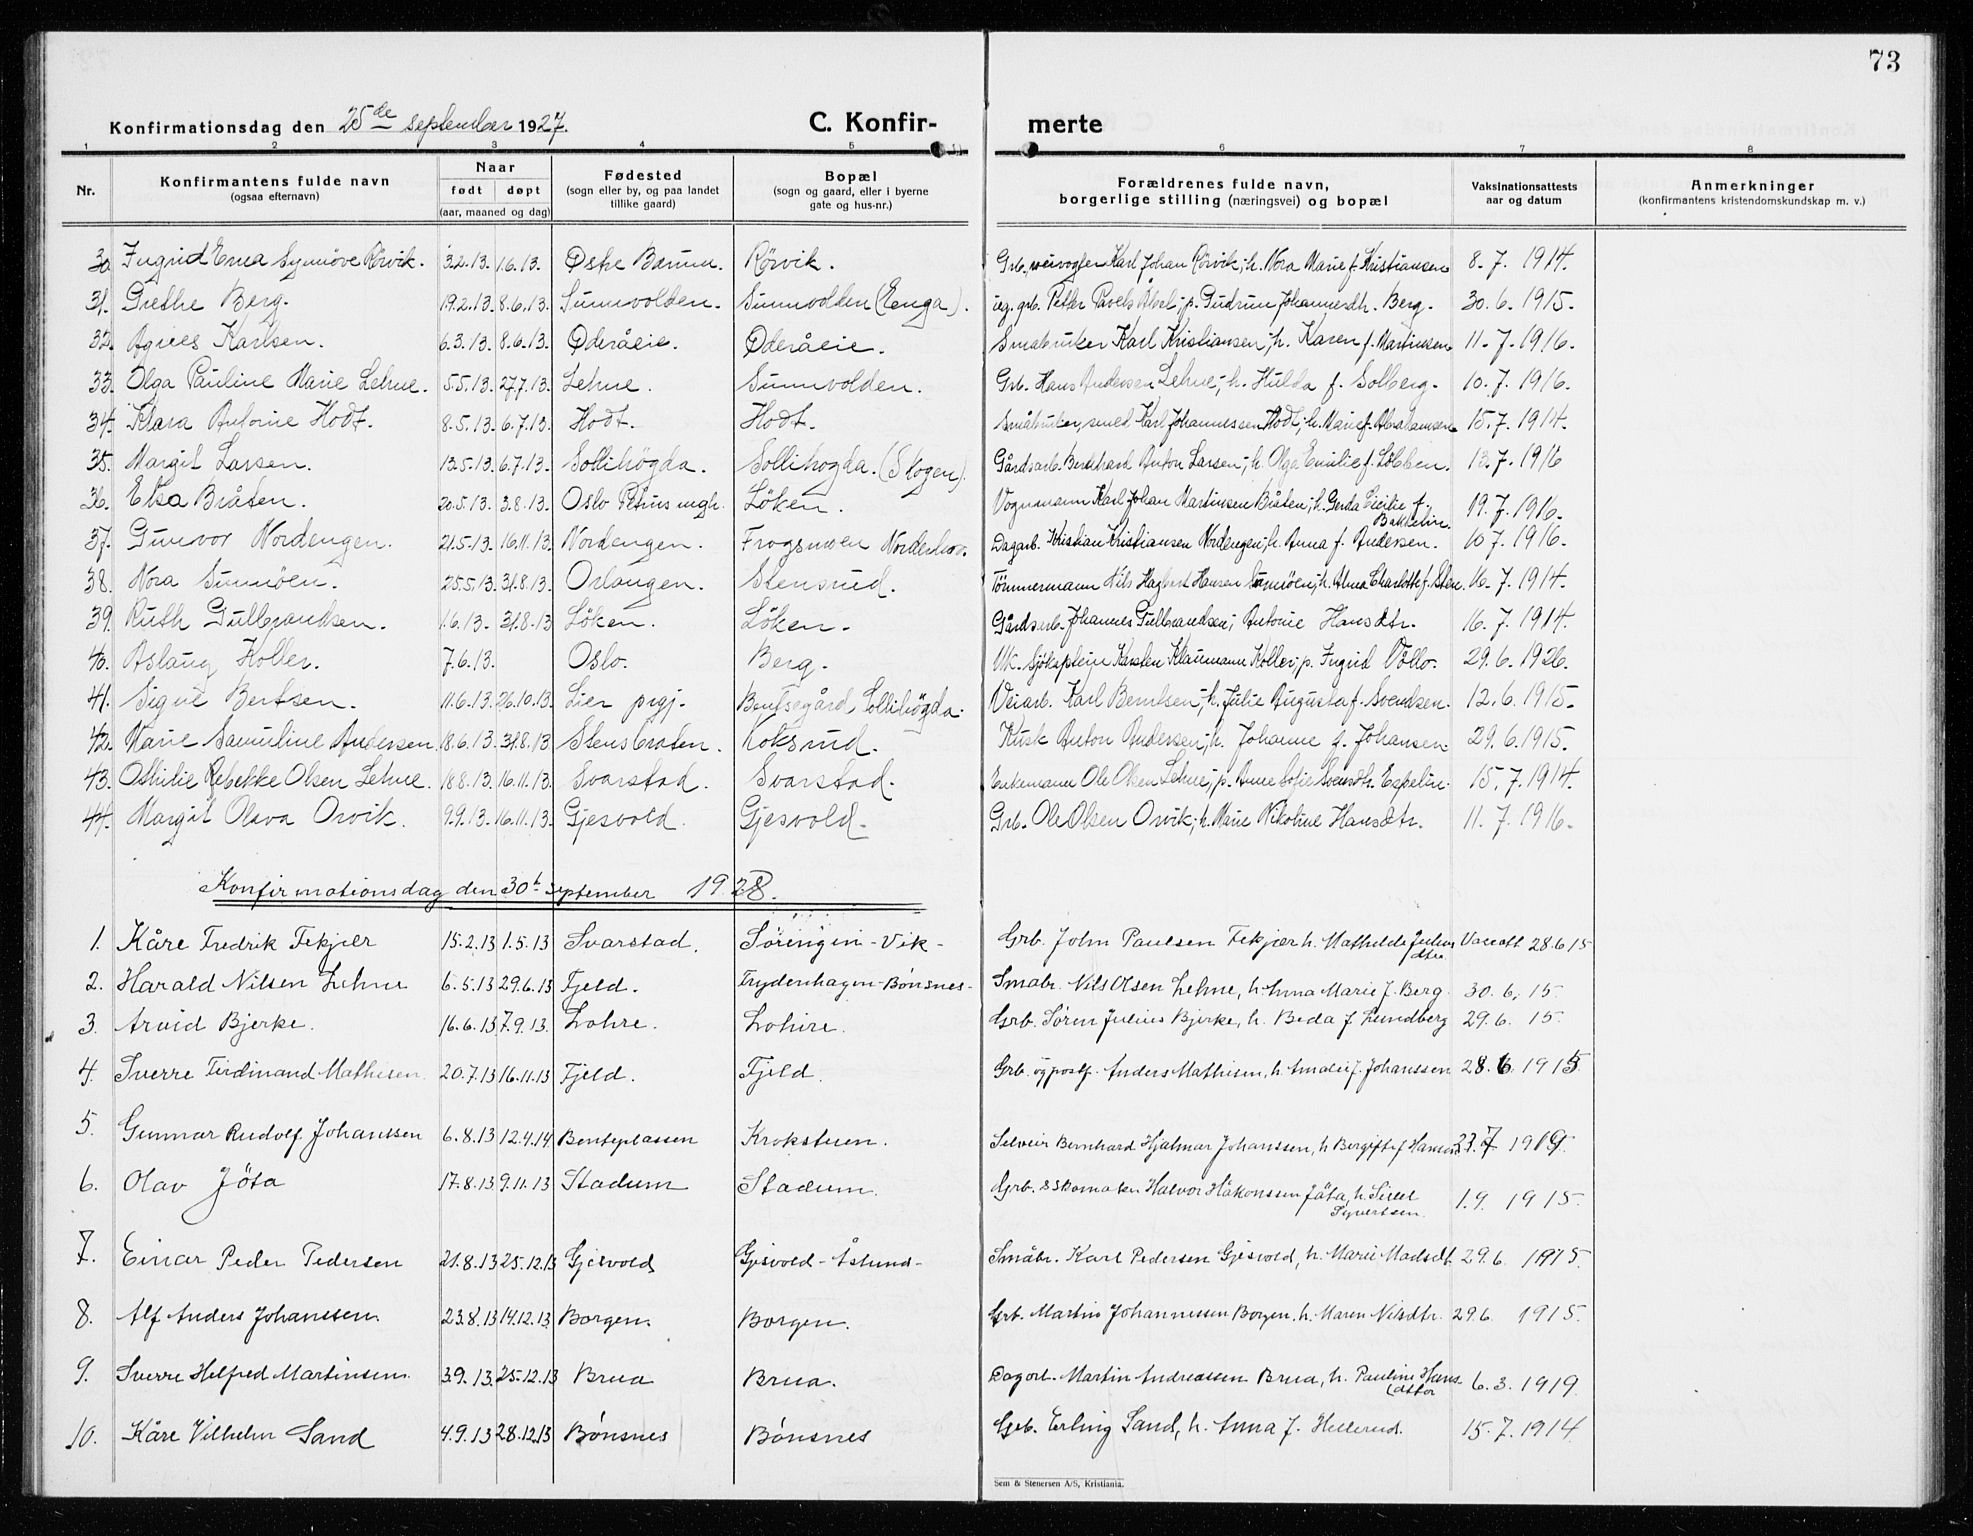 73
Konfirmationsdag den 25de september 1927. C. Konfir- merte
1 2 3 4 5 6 7 8
Nr. Konfirmantens fulde navn Naar Fødested Bopæl Forældrenes fulde navn, Vaksinationsattests Anmerkninger
(ogsaa efternavn) født døpt (sogn eller by, og paa landet (sogn og gaard, eller i byerne borgerlige stilling (næringsvei) og bopæl aar og datum (konfirmantens kristendomskundskap m. v.)
(aar, maaned og dag) tillike gaard) gate og hus-nr.)
30 Ingrid Erna Synnöve Rörvik. 3.2.13. 1.6.13. Østre Bærum. Rörvik. Grb, Karl Johan Rörvik; h. Nora Marie f. Kristiansen 8. 7. 1914.
31. Grethe Berg. 19.2.13. 8.6.13. Sunnvolden. Sunnvolden (Enga). ug. grb. Petter Pavels; p. Gudrun Johannesdtr. Berg. 30. 6. 1915.
32. Agnes Karlsen. 6.3.13. 8.6.13. Øderåeie. Øderåeie. Småbruker Karl Kristiansen; h. Karen f. Martinsen 11. 7. 1916.
33. Olga Pauline Marie Lehne. 5.5.13. 27.7.13. Lehne. Sunnvolden. Grb. Hans Andersen Lehne; h. Hulda f. Solberg. 10. 7. 1916.
34. Klara Antonie Hodt. 8.5.13. 6.7.13. Hodt. Hodt. Småbruker, smed Karl Johannessen Hodt; h. Marie f. Abrahamsen 15. 7. 1914.
35. Margit Larsen. 13.5.13. 6.7.13. Sollihögda. Sollihögda. (Skogen). Gårdsarb. Berthrand Anton Larsen; h. Olga Emilie f. Löbben. 13. 7. 1916
36. Elsa Bråten. 20.5.13. 3.8.13. Oslo Petrus mgh. Löken. Vognmann Karl Johan Martinsen Bråten; h. Gerda Cecilie f. 19. 7. 1916.
Bakkelin.
37. Gunvor Nordengen. 21.5.13. 16.11.13. Nordengen. Frogsmoen Norderhov. Dagarb. Kristian Kristiansen Nordengen; h. Anna f. Andersen. 10. 7. 1916.
38. Nora Sunnöen. 25.5.13. 31.8.13. Orlangen. Stensrud. Tömmermann Nils Hagbart Hansen Sunnöen; h. Alma Charlotte f. Sten. 16. 7. 1914.
39. Ruth Gulbrandsen. 1.6.13. 31.8.13 Löken. Löken. Gårdsarb. Johannes Gulbrandsen; Antonie Hansdtr. 16. 7. 1914.
40. Aslaug Holler. 7.6.13. Oslo. Berg. Uk. Sjökaptein Karsten Klaumann Holler; p. Ingrid Vollo. 29. 6. 1926.
41. Signe Berntsen. 11.6.13. 26.10.13. Lier prgj. Bentsegård, Sollihögda. Veiarb. Karl Berntsen; h. Julie Augusta f. Svendsen. 12. 6. 1915.
42. Marie Samuline Andersen. 18.6.13. 31.8.13. Stensbraten. Loksrud. Kusk Anton Andersen; h. Johanne f. Johansen 29. 6. 1915.
43. Othilie Rebekke Olsen Lehne. 18.8.13. 16.11.13. Svarstad. Svarstad. Enkemann Ole Olsen Lehne; p. Anne Sofie Svensdtr. Espelin. 15. 7. 1914.
44. Margit Olava Orvik. 9.9.13. 16.11.13. Gjesvold. Gjesvold. Grb. Ole Olsen Orvik; h. Marie Nikoline Hansdtr. 11. 7. 1916.
Konfirmationsdag den 30t september 1928.
1. Kåre Fredrik Fekjær 15.2.13 1.5.13 Svarstad. Sörengin - Vik - Grb. John Paulsen Fekjær h. Mathilde Julius Vacc att 28.6 15
dtr
2. Harald Nilsen Lehne 6.5.13 29.6.13 Fjeld. Frydenhagen - Bönsnes - Småbr. Nils Olsen Lehne, h. Anna Marie f. Berg. 30. 6. 15.
3. Arvid Bjerke. 16.6.13 7.9.13. Lohre. Lohre. Grb. Sören Julius Bjerke, h. Beda f. Lundberg 29. 6. 15.
4. Sverre Ferdinand Mathisen. 20.7.13 16.11.13 Fjeld. Fjeld. Grb. og postf. Anders Mathisen, h. Amalie f. Johanssen 28. 6. 1915
5. Gunnar Rudolf Johanssen 6.8.13 12.4.14 Benteplassen Krokstuen. Selveier Bernhard Hjalmar Johanssen, h. Bergitte f. Hansen 23. 7 1919.
6. Olav Jöta 17.8.13 9.11.13 Stadum Stadum. Grb. & skomaker Halvor Håkonssen Jöta, h. Sissel 1.9. 1915.
Syvertsen.
7. Einar Peder Pedersen 21.8.13 25.12.13 Gjesvold Gjesvold - Åslund - Småbr. Karl Pedersen Gjesvold, h. Marie Madsdt. 29.6. 1915.
8. Alf Anders Johanssen. 23.8.13 14.12.13. Borgen. Borgen. Grb. Martin Johannessen Borgen. h. Maren Nilsdtr. 29.6. 1915.
9. Sverre Helfred Martinsen. 3.9.13. 25.12.13 Brua Brua. Dagarb. Martin Andreassen Brua, h. Pauline Hans 6. 3. 1919.
datter
10. Kåre Vilhelm Sand 4.9.13 28.12.13 Bönsnes Bönsnes Grb. Erling Sand, h. Anna f. Hellerud. 15. 7. 1914.
Sem & Stenersen A/S, Kristiania.